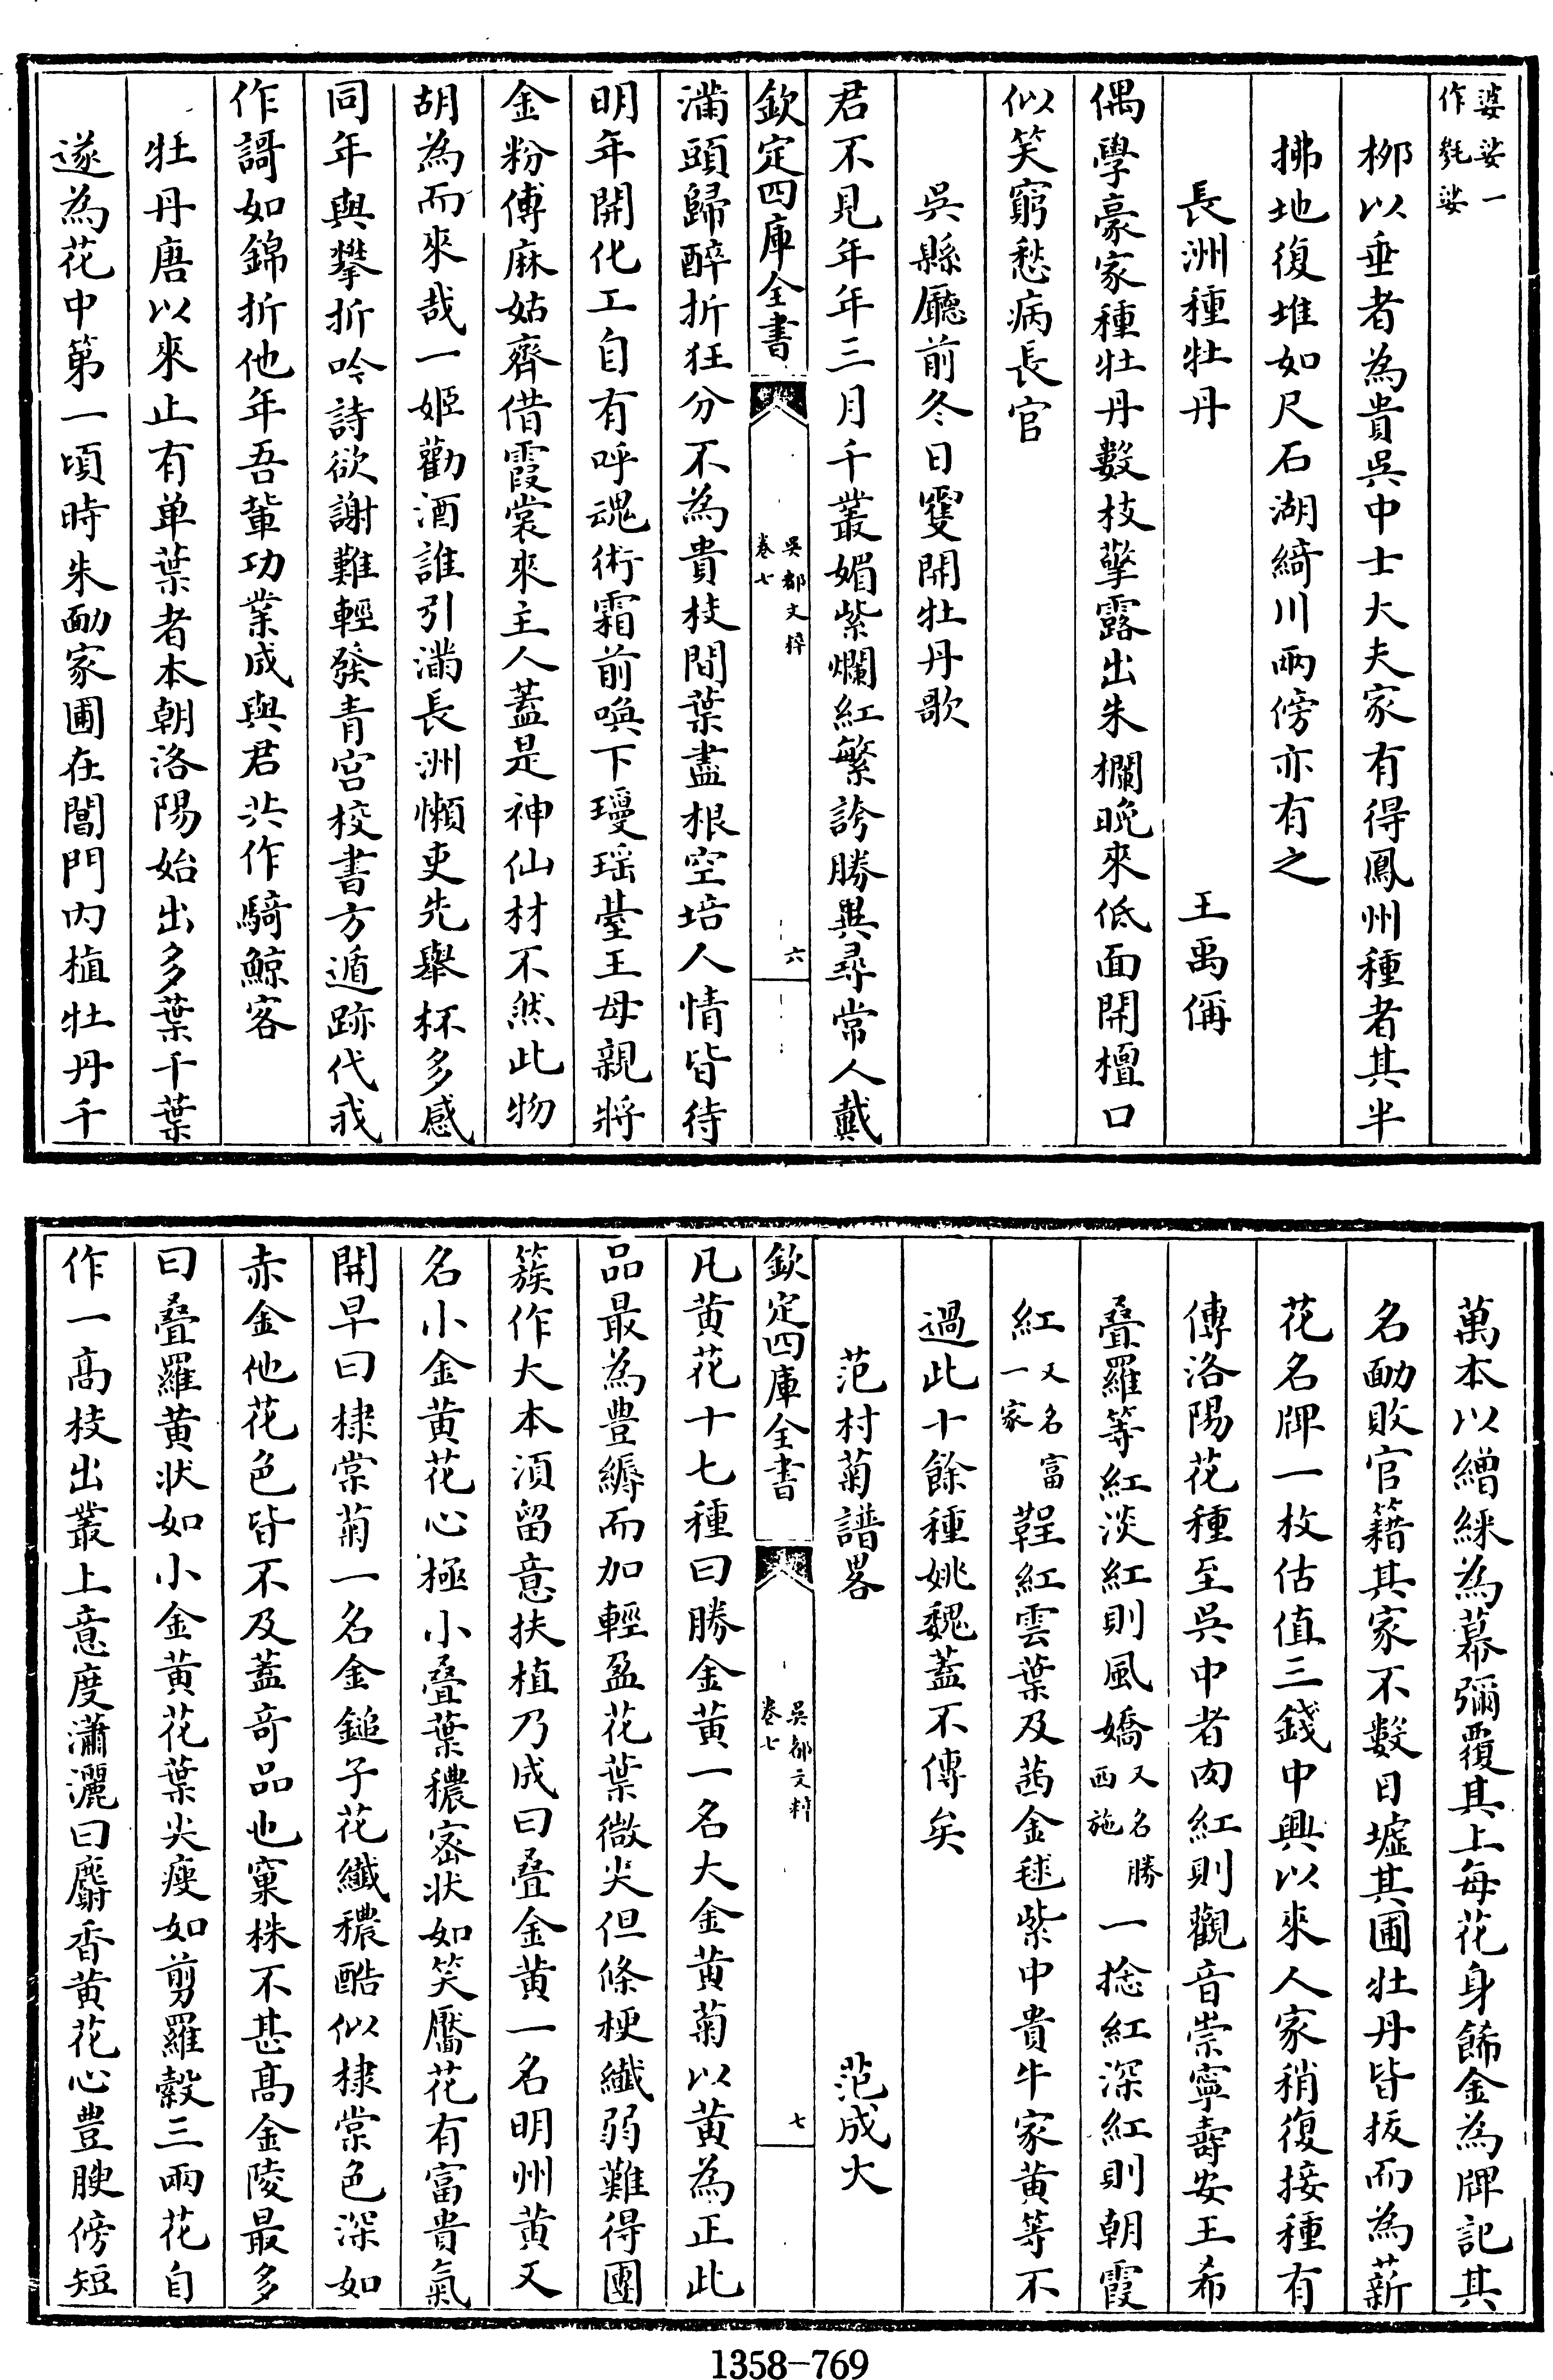 婆娑一
作毿娑
栁以垂者為貴吳中士大夫家有得鳳州種者其半
拂地復堆如尺石湖綺川兩傍亦有之
長洲種牡丹 王禹偁
偶學豪家種牡丹數枝擎露出朱欄晩來低面開檀口
似笑窮愁病長官
吳縣廳前冬日雙開牡丹歌
君不見年年三月千叢媚紫爛紅繁誇勝異尋常人戴
欽定四庫全書 吳都文粹 卷七 六
滿頭歸醉折狂分不為貴枝間葉盡根空培人情皆待
明年開化工自有呼魂術霜前喚下瓊瑶臺王母親將
金粉傅麻姑齊借霞裳來主人蓋是神仙材不然此物
胡為而來哉一姬勸酒誰引滿長洲懶吏先舉杯多感
同年與攀折吟詩欲謝難輕發青宫校書方遁跡代我
作謌如錦折他年吾輩功業成與君共作騎鯨客
牡丹唐以來止有单葉者本朝洛陽始出多葉千葉
遂為花中第一頃時朱勔家圃在閶門内植牡丹千
萬本以繒綵為幕彌覆其上每花身餙金為牌記其
名勔敗官籍其家不數日墟其圃牡丹皆拔而為薪
花名牌一枚估值三錢中興以來人家稍復接種有
傳洛陽花種至吳中者肉紅則觀音崇寧壽安王希
疊羅等紅淡紅則風嬌又名勝西施一捻紅深紅則朝霞
紅又名富一家鞓紅雲葉及茜金毬紫中貴牛家黄等不
過此十餘種姚魏蓋不傳矣
范村菊譜畧 范成大
欽定四庫全書 吳都文粹 卷七 七
凡黄花十七種曰勝金黄一名大金黄菊以黄為正此
品最為豊縟而加輕盈花葉微尖但條梗纖弱難得團
簇作大本湏留意扶植乃成曰疊金黄一名明州黄又
名小金黄花心極小疊葉穠宻状如笑靨花有富貴氣
開早曰棣棠菊一名金鎚子花纖穠酷似棣棠色深如
赤金他花色皆不及蓋竒品也窠株不甚髙金陵最多
曰疊羅黄状如小金黄花葉尖瘦如剪羅縠三兩花自
作一髙枝出叢上意度瀟灑曰麝香黄花心豊腴傍短
1358-769